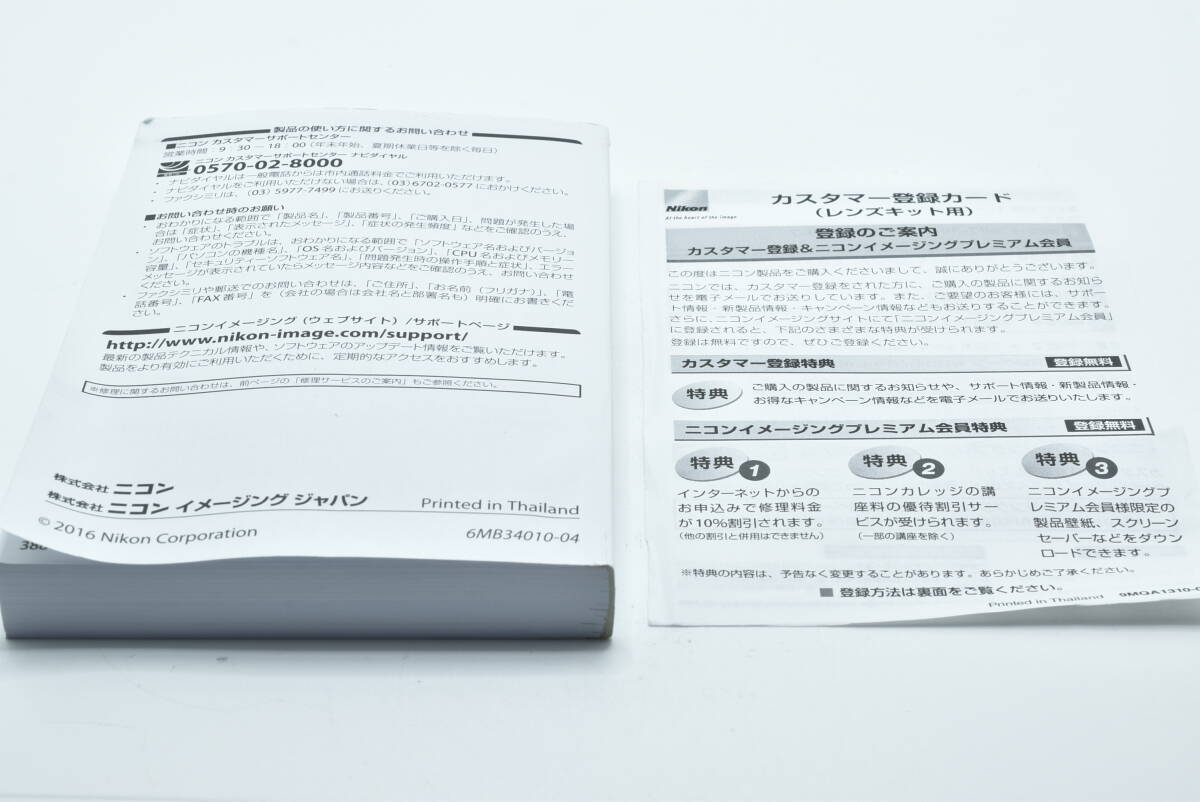 製品の使い方に関するお問い合わせ
■ニコン カスタマーサポートセンター
営業時間：9：30－18：00（年末年始、夏期休業日等を除く毎日）
ニコン カスタマーサポートセンター ナビダイヤル
0570-02-8000
・ナビダイヤルは一般電話からは市内通話料金でご利用いただけます。
・ナビダイヤルをご利用いただけない場合は、(03)6702-0577におかけください。
・ファクシミリは、(03) 5977-7499にお送りください。
■お問い合わせ時のお願い
・おわかりになる範囲で「製品名」、「製品番号」、「ご購入日」、問題が発生した場
合は「症状」、「表示されたメッセージ」、「症状の発生頻度」などをご確認のうえ、
お問い合わせください。
・ソフトウェアのトラブルは、おわかりになる範囲で「ソフトウェア名およびバージョ
ン」、「パソコンの機種名」、「OS名およびバージョン」、「CPU名およびメモリー
容量」、「セキュリティーソフトウェア名」、「問題発生時の操作手順と症状」、エラー
メッセージが表示されていたらメッセージ内容などをご確認のうえ、お問い合わせ
ください。
・ファクシミリや郵送でのお問い合わせは、「ご住所」、「お名前（フリガナ）」、「電
話番号」、「FAX番号」を（会社の場合は会社名と部署名も）明確にお書きくだ
さい。
ニコンイメージング（ウェブサイト）/サポートページ
http://www.nikon-image.com/support/
最新の製品テクニカル情報や、ソフトウェアのアップデート情報をご覧いただけます。
製品をより有効にご利用いただくために、定期的なアクセスをおすすめします。
※修理に関するお問い合わせは、前ページの「修理サービスのご案内」もご参照ください。
株式会社 ニコン
株式会社 ニコン イメージング ジャパン
Printed in Thailand
© 2016 Nikon Corporation
6MB34010-04
Nikon
At the heart of the image
カスタマー登録カード
（レンズキット用）
登録のご案内
カスタマー登録＆ニコンイメージングプレミアム会員
この度はニコン製品をご購入くださいまして、誠にありがとうございます。
ニコンでは、カスタマー登録をされた方に、ご購入の製品に関するお知ら
せを電子メールでお送りしています。また、ご要望のお客様には、サポー
ト情報・新製品情報・キャンペーン情報などもお送りすることができます。
さらに、ニコンイメージングサイトにて「ニコンイメージングプレミアム会員」
に登録されると、下記のさまざまな特典が受けられます。
登録は無料ですので、ぜひご登録ください。
カスタマー登録特典 登録無料
特典
ご購入の製品に関するお知らせや、サポート情報・新製品情報・
お得なキャンペーン情報などを電子メールでお送りいたします。
ニコンイメージングプレミアム会員特典 登録無料
特典 1
インターネットからの
お申込みで修理料金
が10%割引されます。
（他の割引と併用はできません）
特典 2
ニコンカレッジの講
座料の優待割引サー
ビスが受けられます。
（一部の講座を除く）
特典 3
ニコンイメージングプ
レミアム会員様限定の
製品壁紙、スクリーン
セーバーなどをダウン
ロードできます。
※特典の内容は、予告なく変更することがあります。あらかじめご了承ください。
■ 登録方法は裏面をご覧ください。
Printed in Thailand 9MQA1310-0